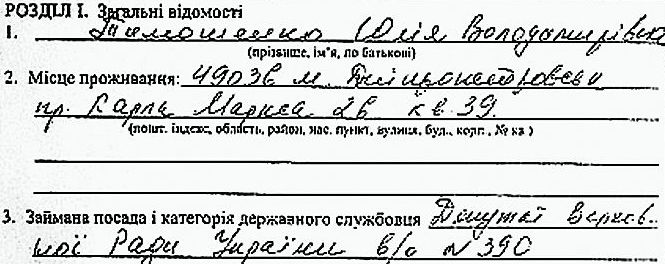 РОЗДІЛ І. Загальні відомості
1. Тимошенко Юлія Володимирівна
(прізвище, ім'я, по батькові)
2. Місце проживання: 49036 м. Дніпропетровськ
пр. Карла Маркса 2в кв. 39.
(пошт. індекс, область, район, нас. пункт, вулиця, буд., корп., № кв)
3. Займана посада і категорія державного службовця Депутат Верхов-
ної Ради України в/о №390